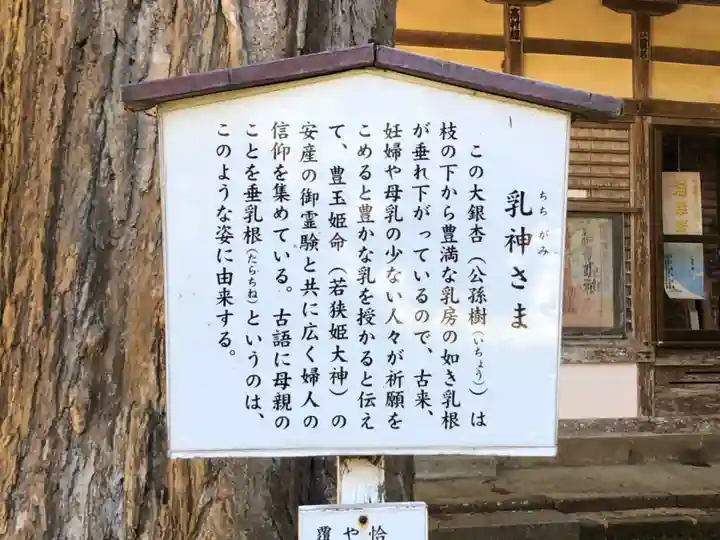 乳神さま
ちちがみ
この大銀杏(公孫樹(いちょう))は
枝の下から豊満な乳房の如き乳根
が垂れ下がっているので、古来、
妊婦や母乳の少ない人々が祈願を
こめると豊かな乳を授かると伝え
て、豊玉姫命(若狭姫大神)の
安産の御霊験と共に広く婦人の
信仰を集めている。古語に母親の
ことを垂乳根(たらちね)というのは、
このような姿に由来する。
恰
や
覆